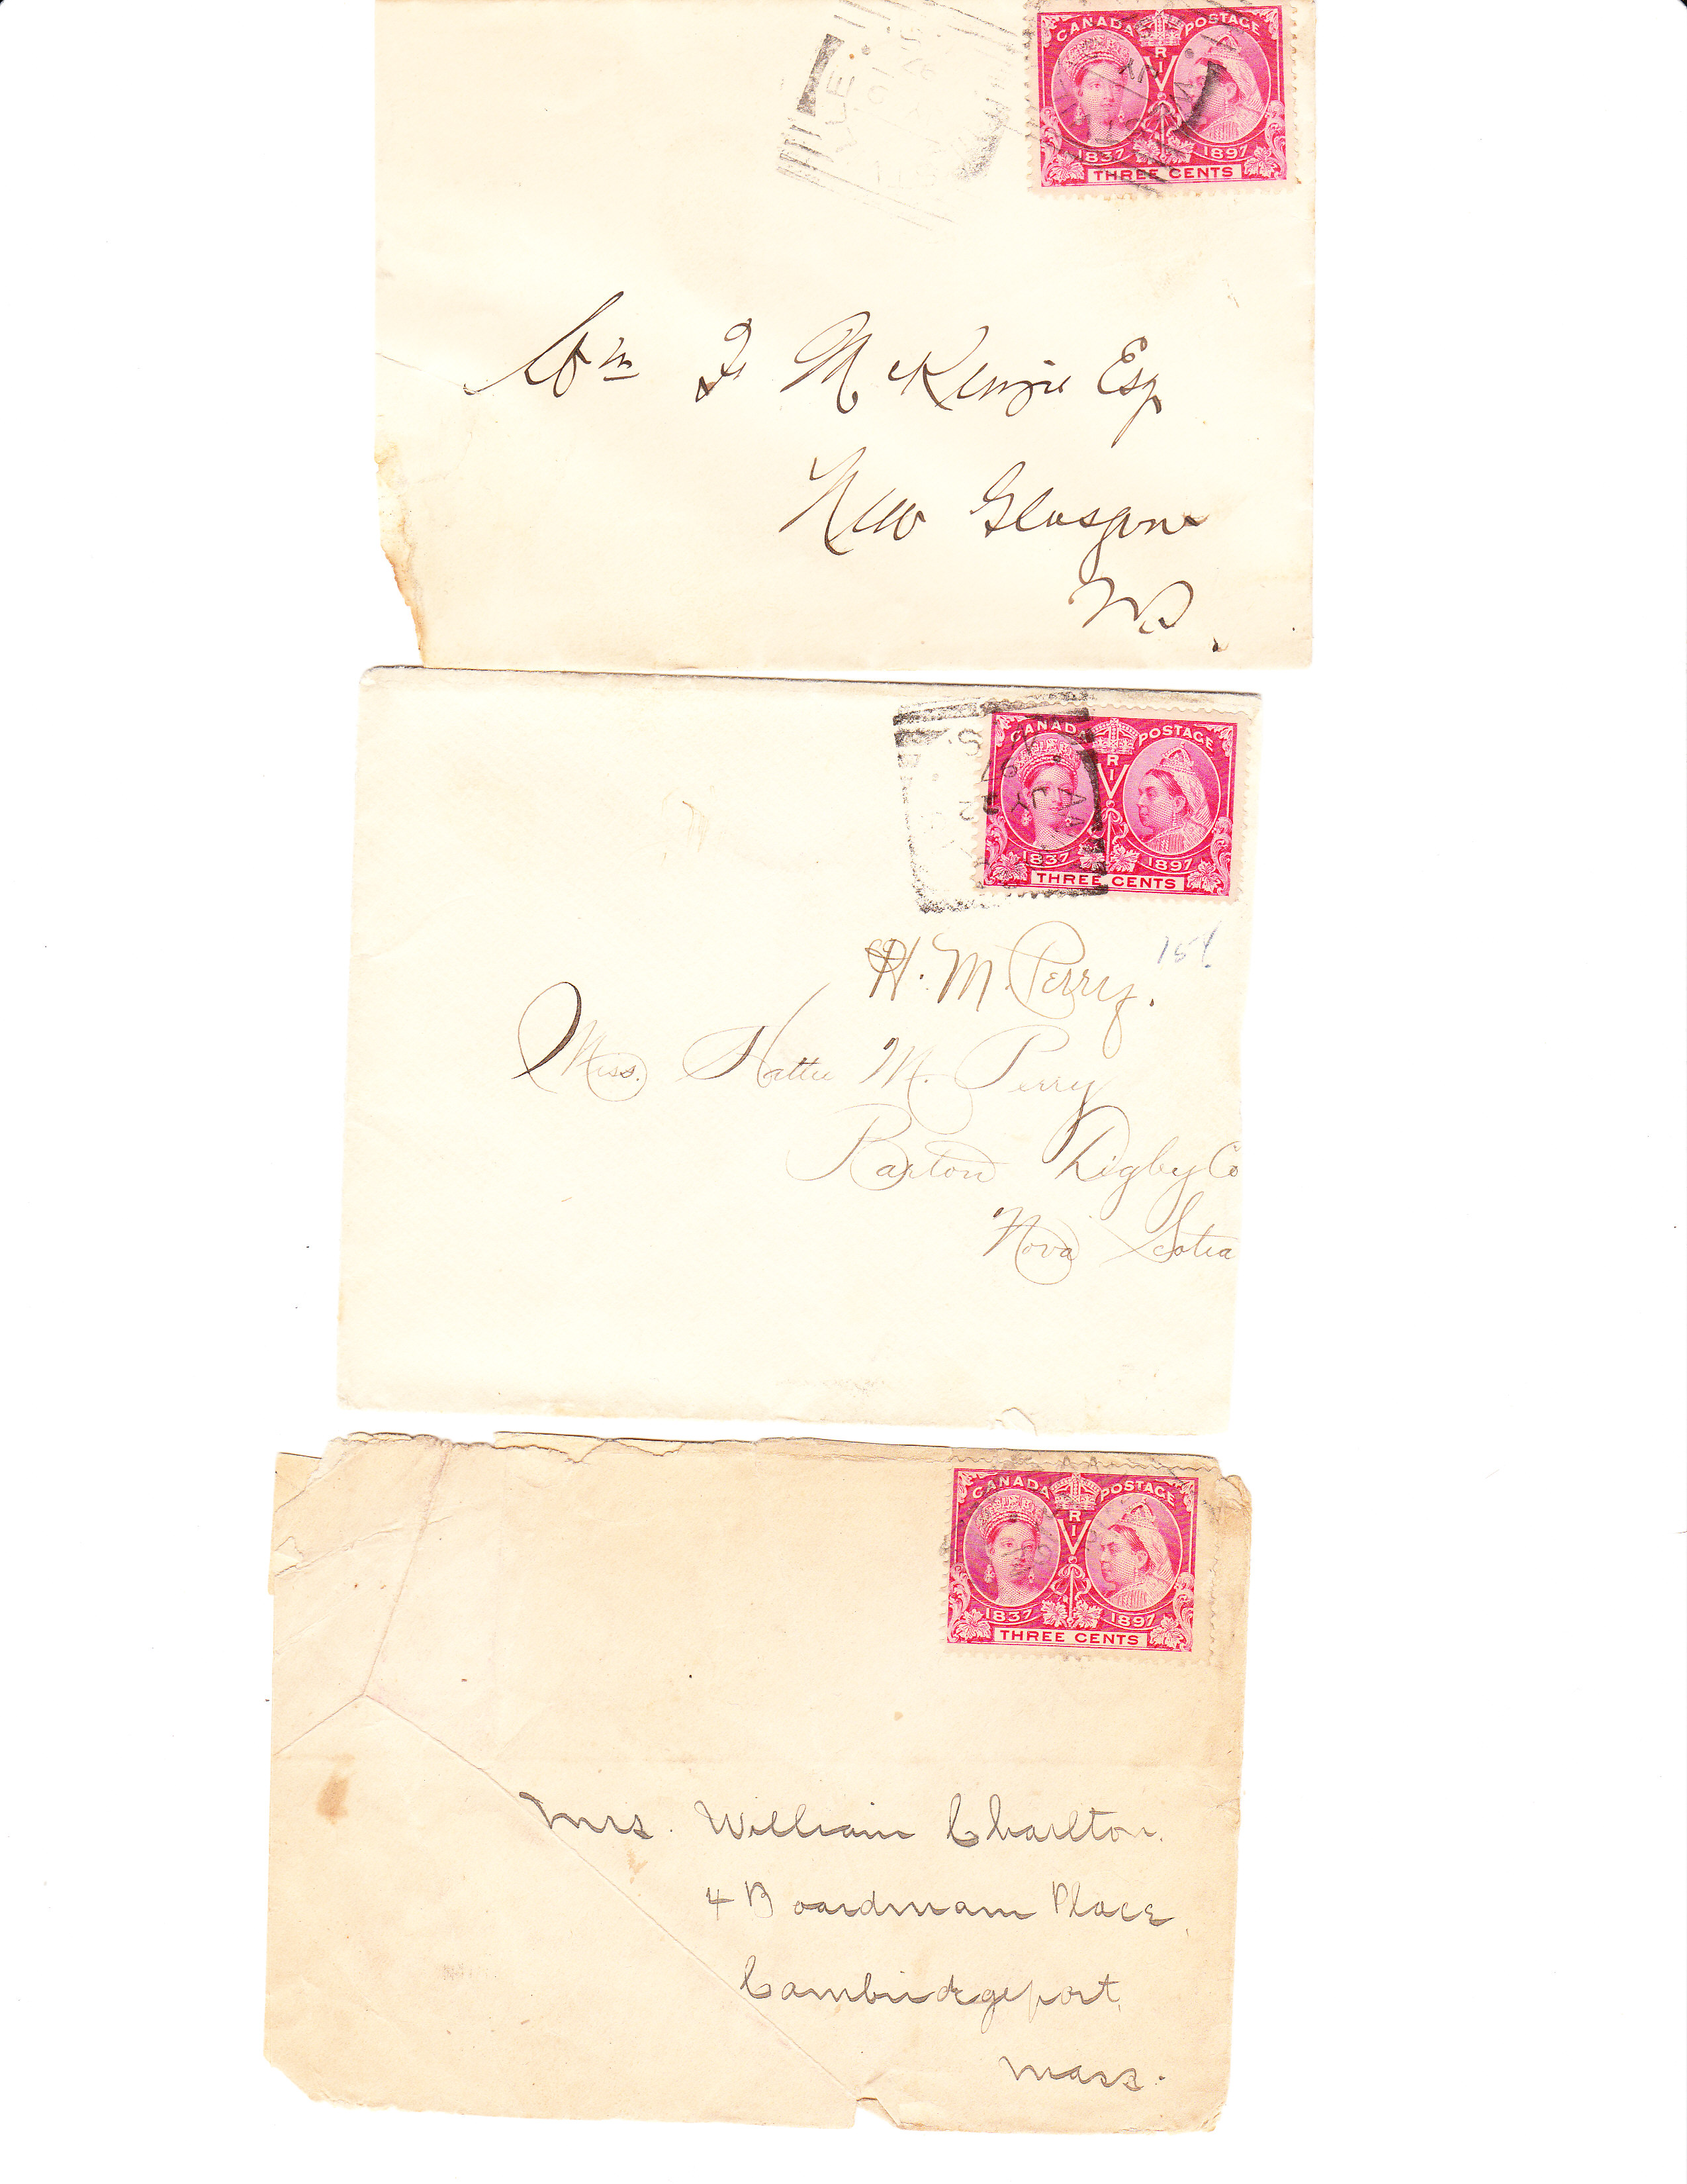 CANADA POSTAGE
V R I
1837 1897
THREE CENTS
Wm F McKenzie Esq
New Glasgow
N.S.
CANADA POSTAGE
V R I
1837 1897
THREE CENTS
15¢
H. M. Perry.
Miss. Hattie M. Perry
Barton Digby Co
Nova Scotia
CANADA POSTAGE
V R I
1837 1897
THREE CENTS
Mrs. William Charlton.
4 Boardman Place,
Cambridgeport,
Mass.